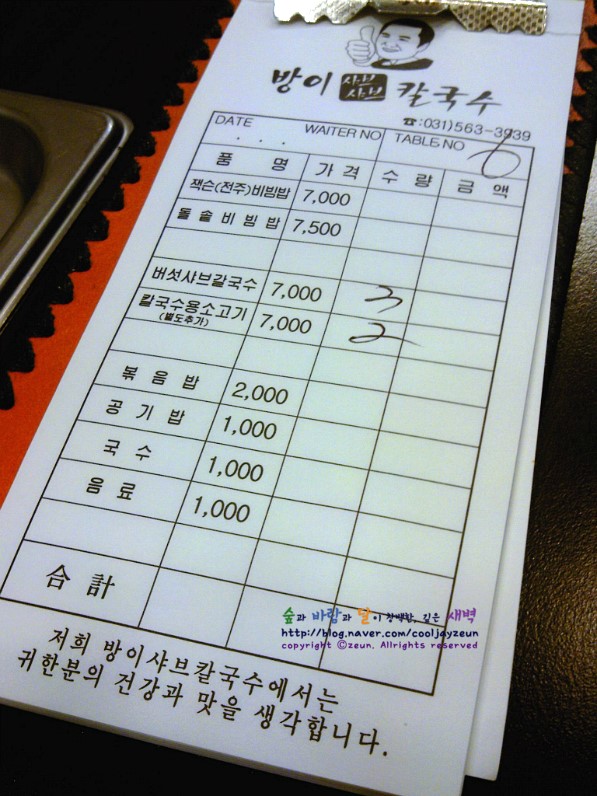 방이 샤브샤브 칼국수
☎:031)563-3939
DATE . . . WAITER NO TABLE NO 6
품 명 가격 수량 금액
잭슨(전주)비빔밥 7,000
돌솥비빔밥 7,500
버섯샤브칼국수 7,000 3
칼국수용소고기 7,000 2
(별도추가)
볶음밥 2,000
공기밥 1,000
국수 1,000
음료 1,000
合計
숲과 바람과 달이 창백한, 깊은 새벽
http://blog.naver.com/cooljayzeun
copyright ©zeun. Allrights reserved
저희 방이샤브칼국수에서는
귀한분의 건강과 맛을 생각합니다.